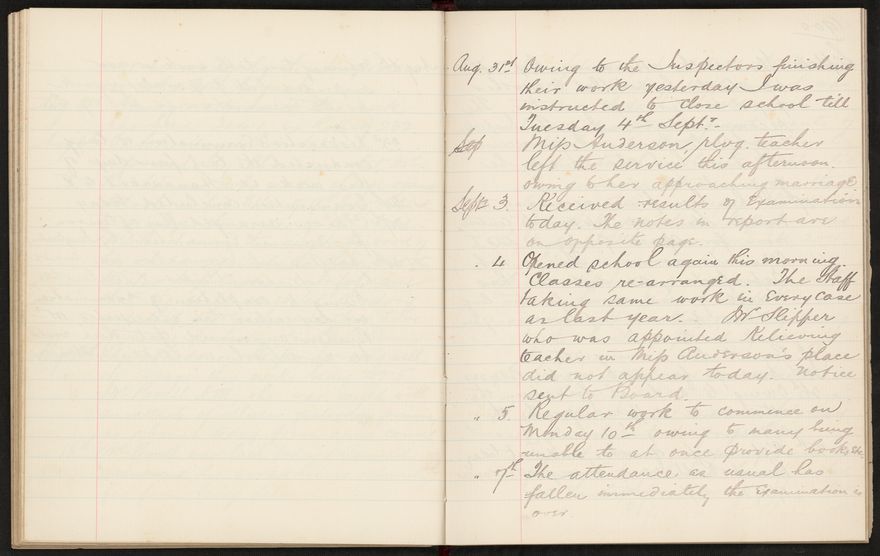 Aug. 31st Owing to the Inspectors finishing
their work yesterday I was
instructed to close school till
Tuesday 4th Sept.-
Sep Miss Anderson, prvg. teacher
left the service this afternoon
owing to her approaching marriage.
Sept. 3. Received results of Examination
today. The notes in report are
on opposite page.
" 4 Opened school again this morning.
Classes re-arranged. The Staff
taking same work in every case
as last year. Mr Slipper
who was appointed Relieving
teacher in Miss Anderson's place
did not appear today. Notice
sent to Board.
" 5. Regular work to commence on
Monday 10th owing to many being
unable to at once provide books, etc.
" 7th The attendance as usual has
fallen immediately the Examination is
over.